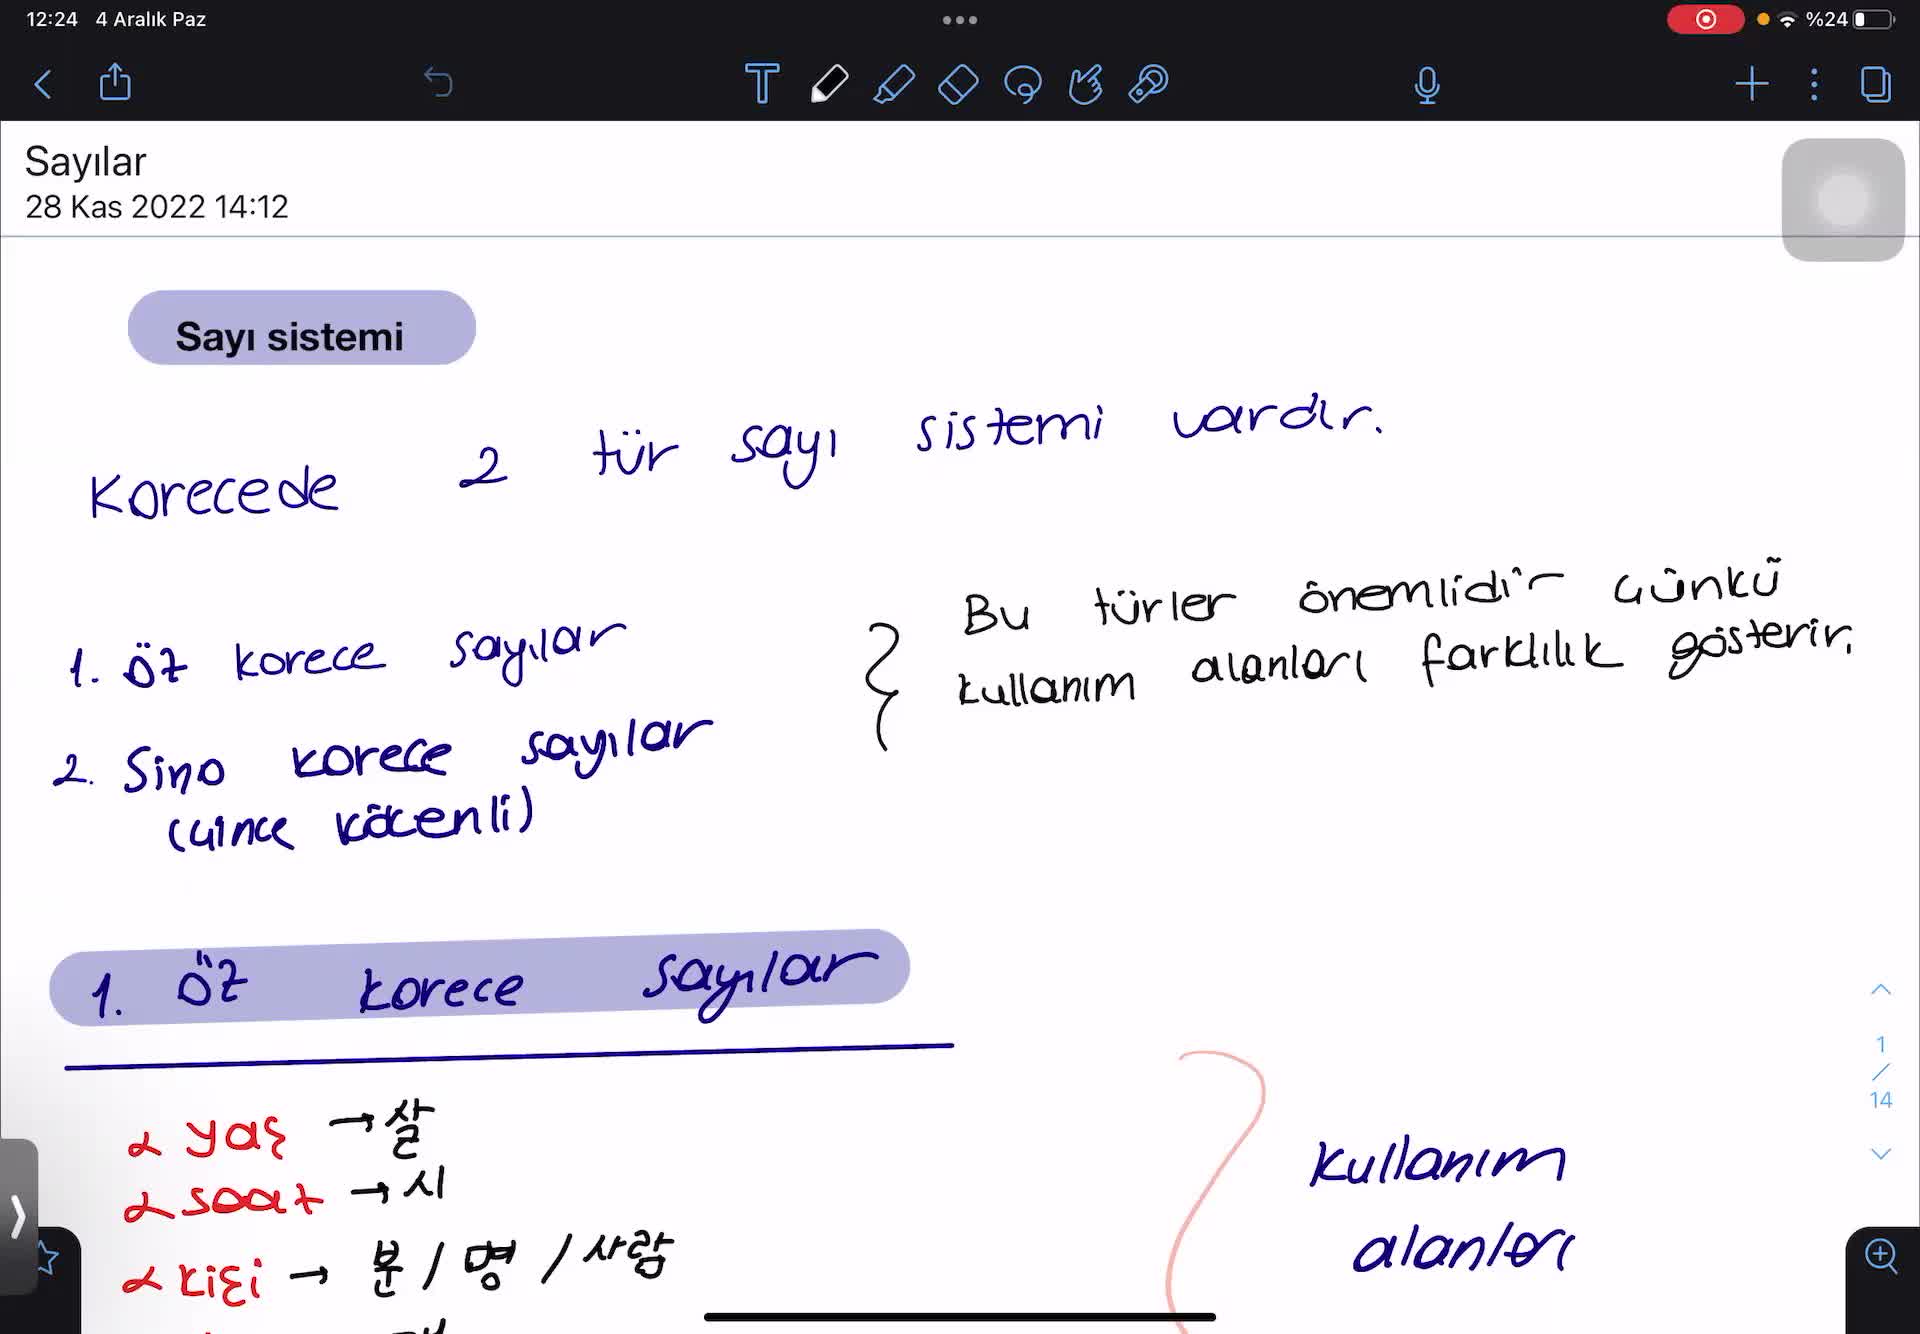 12:24 4 Aralık Paz
%24
Sayılar
28 Kas 2022 14:12
Sayı sistemi
Korecede 2 tür sayı sistemi vardır.
1. öz korece sayılar
2. Sino korece sayılar
(Çince kökenli)
Bu türler önemlidir Çünkü
kullanım alanları farklılık gösterir.
1. öz korece sayılar
yaş →살
saat →시
kişi → 분 / 명 / 사람
kullanım
alanları
1
/
14